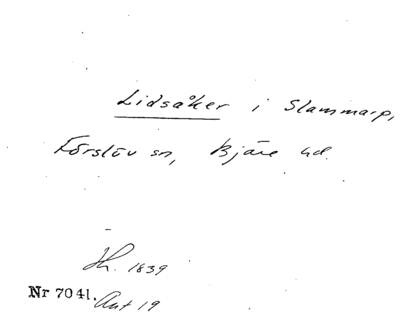 Lidsåker i Slammarp,
Förslöv sn, Bjäre hd.
Jh. 1839
Nr 7041. Ant 19